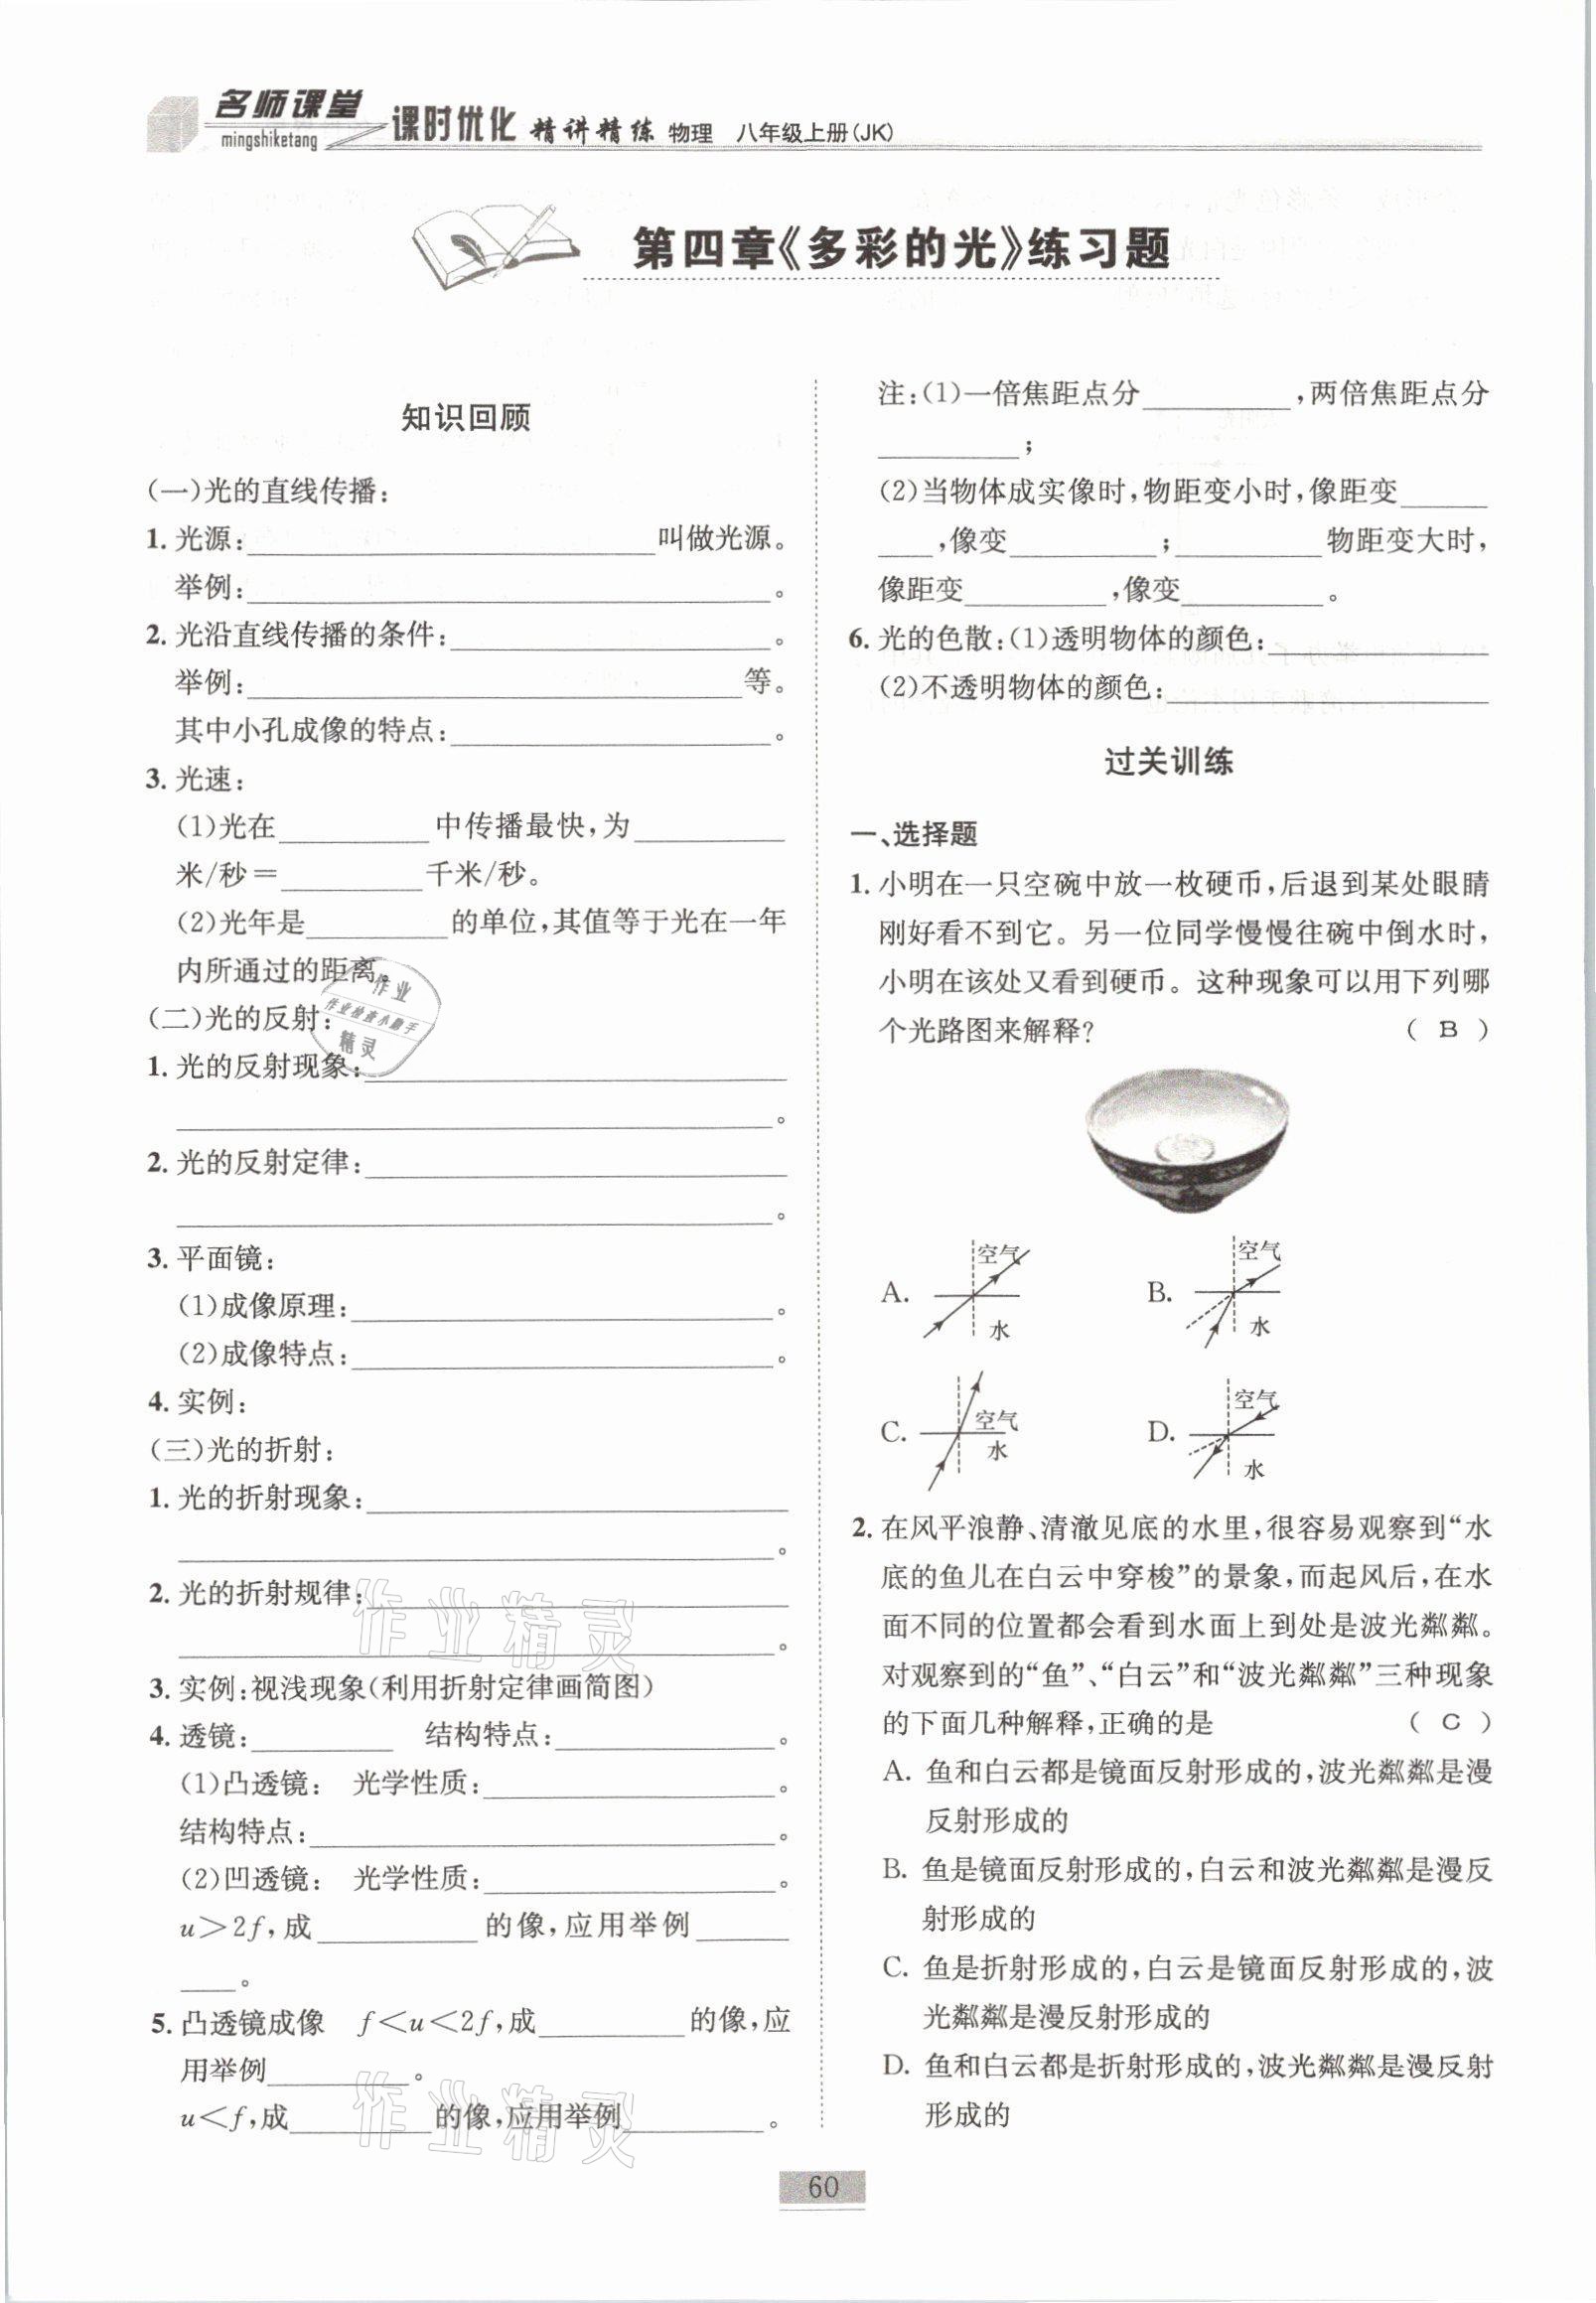 名师课堂
mingshiketang
课时优化 精讲精练 物理 八年级上册(JK)
第四章《多彩的光》练习题
知识回顾
(一)光的直线传播:
1. 光源:____________叫做光源。
举例:____________。
2. 光沿直线传播的条件:____________。
举例:____________等。
其中小孔成像的特点:____________。
3. 光速:
(1)光在________中传播最快,为________
米/秒=________千米/秒。
(2)光年是________的单位,其值等于光在一年
内所通过的距离。
(二)光的反射:
1. 光的反射现象:____________
____________。
2. 光的反射定律:____________
____________。
3. 平面镜:
(1)成像原理:____________。
(2)成像特点:____________。
4. 实例:
(三)光的折射:
1. 光的折射现象:____________
____________。
2. 光的折射规律:____________
____________。
3. 实例:视浅现象(利用折射定律画简图)
4. 透镜:________ 结构特点:____________。
(1)凸透镜: 光学性质:____________。
结构特点:____________。
(2)凹透镜: 光学性质:____________。
u>2f,成________的像,应用举例______
____。
5. 凸透镜成像 f<u<2f,成________的像,应
用举例________。
u<f,成________的像,应用举例________。
注:(1)一倍焦距点分________,两倍焦距点分
________;
(2)当物体成实像时,物距变小时,像距变_____
____,像变________;________物距变大时,
像距变________,像变________。
6. 光的色散:(1)透明物体的颜色:____________
(2)不透明物体的颜色:____________
过关训练
一、选择题
1. 小明在一只空碗中放一枚硬币,后退到某处眼睛
刚好看不到它。另一位同学慢慢往碗中倒水时,
小明在该处又看到硬币。这种现象可以用下列哪
个光路图来解释? ( B )
A. 空气 水
B. 空气 水
C. 空气 水
D. 空气 水
2. 在风平浪静、清澈见底的水里,很容易观察到“水
底的鱼儿在白云中穿梭”的景象,而起风后,在水
面不同的位置都会看到水面上到处是波光粼粼。
对观察到的“鱼”、“白云”和“波光粼粼”三种现象
的下面几种解释,正确的是 ( C )
A. 鱼和白云都是镜面反射形成的,波光粼粼是漫
反射形成的
B. 鱼是镜面反射形成的,白云和波光粼粼是漫反
射形成的
C. 鱼是折射形成的,白云是镜面反射形成的,波
光粼粼是漫反射形成的
D. 鱼和白云都是折射形成的,波光粼粼是漫反射
形成的
60
作业
作业检查小助手
精灵
作业精灵
作业精灵